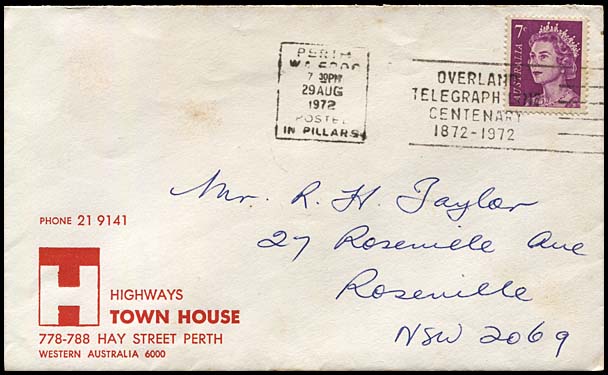 PERTH
WA 6000
7 30PM
29 AUG
1972
POSTED
IN PILLARS
OVERLAND
TELEGRAPH LINE
CENTENARY
1872-1972
7c
AUSTRALIA
Mr. R. H. Taylor
27 Roseville Ave
Roseville
NSW 2069
PHONE 21 9141
H
HIGHWAYS
TOWN HOUSE
778-788 HAY STREET PERTH
WESTERN AUSTRALIA 6000